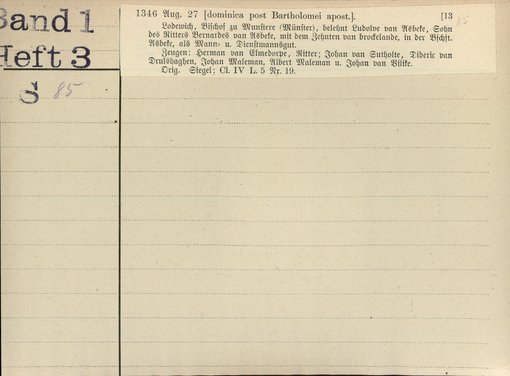 Band 1
Heft 3
S 85
1346 Aug. 27 [dominica post Bartholomei apost.]. [13
85
Lodewich, Bischof zu Munstere (Münster), belehnt Ludolve van Asbeke, Sohn
des Ritters Bernardes van Asbeke, mit dem Zehnten van brockelande, in der Bschft.
Asbeke, als Mann- u. Dienstmannsgut.
Zeugen: Herman van Elmedorpe, Ritter; Johan van Sutholte, Dideric van
Drulshaghen, Johan Maleman, Albert Maleman u. Johan van Bilike.
Orig. Siegel; Cl. IV L. 5 Nr. 19.